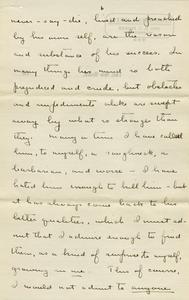 6
never-say-die, lived and preached
by his own self, are the reason
and substance of his success. In
many things his mind is both
prejudiced and crude, but obstacles
and impediments who are swept
away by what is stronger than
they. Many a time I have called
him, to myself, a roughneck, a
barbarian, and worse - I have
hated him enough to kill him - but
it has always come back to his
better qualities, which I must ad-
mit that I admire enough to find
them, as a kind of surprise to myself,
growing in me. This of course,
I would not admit to anyone